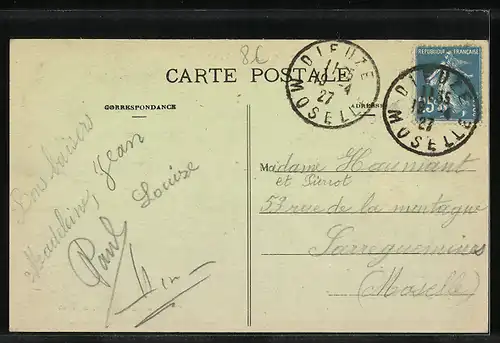 8C
CARTE POSTALE
CORRESPONDANCE
ADRESSE
DIEUZE
11
19-4
27
MOSELLE
REPUBLIQUE FRANÇAISE
DIEUZE
27
MOSELLE
Bons baisers
Madeleine, Jean
Louise
Paul
Madame Haumant
et Pierrot
53 rue de la montagne
Sarreguemines
(Moselle)